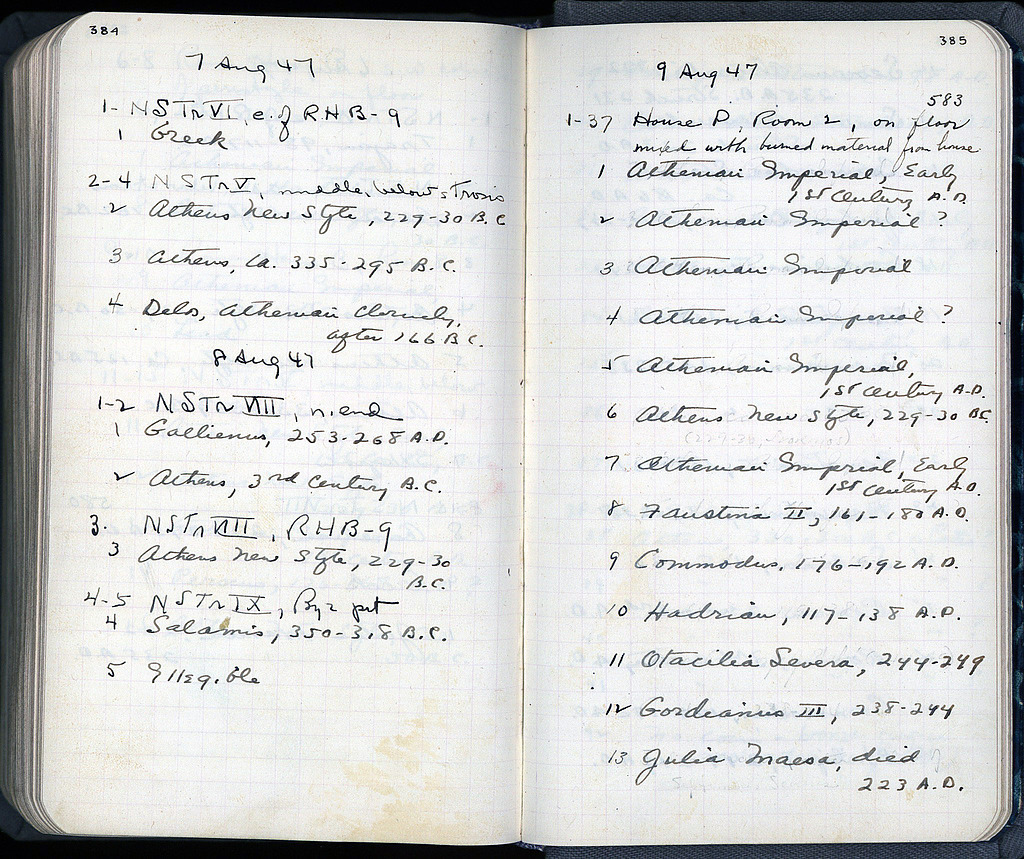 384
7 Aug 47
1- NSTr VI, e. of RHB-9
1 Greek
2-4 NSTr V, middle, below strosis
2 Athens New Style, 229-30 B.C.
3 Athens, ca. 335-295 B.C.
4 Delos, Athenian Cleruchy,
after 166 B.C.
8 Aug 47
1-2 NSTr VIII, n. end
1 Gallienus, 253-268 A.D.
2 Athens, 3rd century B.C.
3. NSTr VIII, RHB-9
3 Athens New Style, 229-30
B.C.
4-5 NSTr IX, Byz pit
4 Salamis, 350-318 B.C.
5 Illegible
385
9 Aug 47
583
1-37 House P, Room 2, on floor
mixed with burned material from house
1 Athenian Imperial, Early
1st Century A.D.
2 Athenian Imperial ?
3 Athenian Imperial
4 Athenian Imperial ?
5 Athenian Imperial,
1st Century A.D.
6 Athens New Style, 229-30 B.C.
7 Athenian Imperial, Early
1st Century A.D.
8 Faustina II, 161-180 A.D.
9 Commodus, 176-192 A.D.
10 Hadrian, 117-138 A.D.
11 Otacilia Severa, 244-249
12 Gordianus III, 238-244
13 Julia Maesa, died
223 A.D.